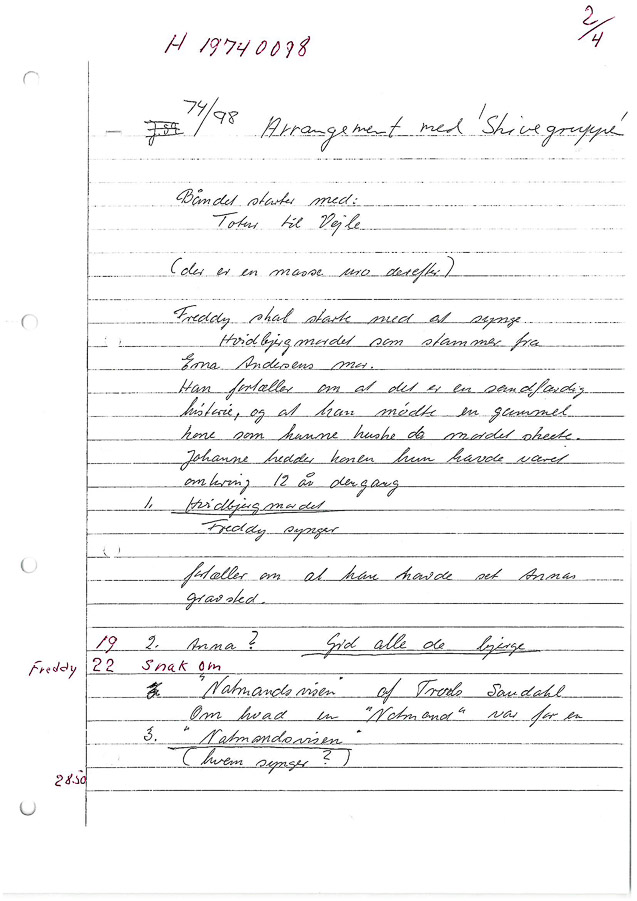 2/4
H 19740098
74/98 Arrangement med 'Skivegruppe'
Båndet starter med:
Totur til Vejle
(der er en masse uro derefter)
Freddy skal starte med at synge
Hvidbjergmordet som stammer fra
Erna Andersens mor.
Han fortæller om at det er en sandfærdig
historie, og at han mødte en gammel
kone som kunne huske da mordet skeete.
Johanne hedder konen hun havde været
omkring 12 år dengang
1. Hvidbjergmordet
Freddy synger
fortæller om at han havde set Annas
gravsted.
19 2. Anna? Gid alle de bjerge
Freddy 22 Snak om
"Natmandsvisen" af Troels Sandahl
Om hvad en "Natmand" var for en
3. "Natmandsvisen"
(hvem synger?)
28.50